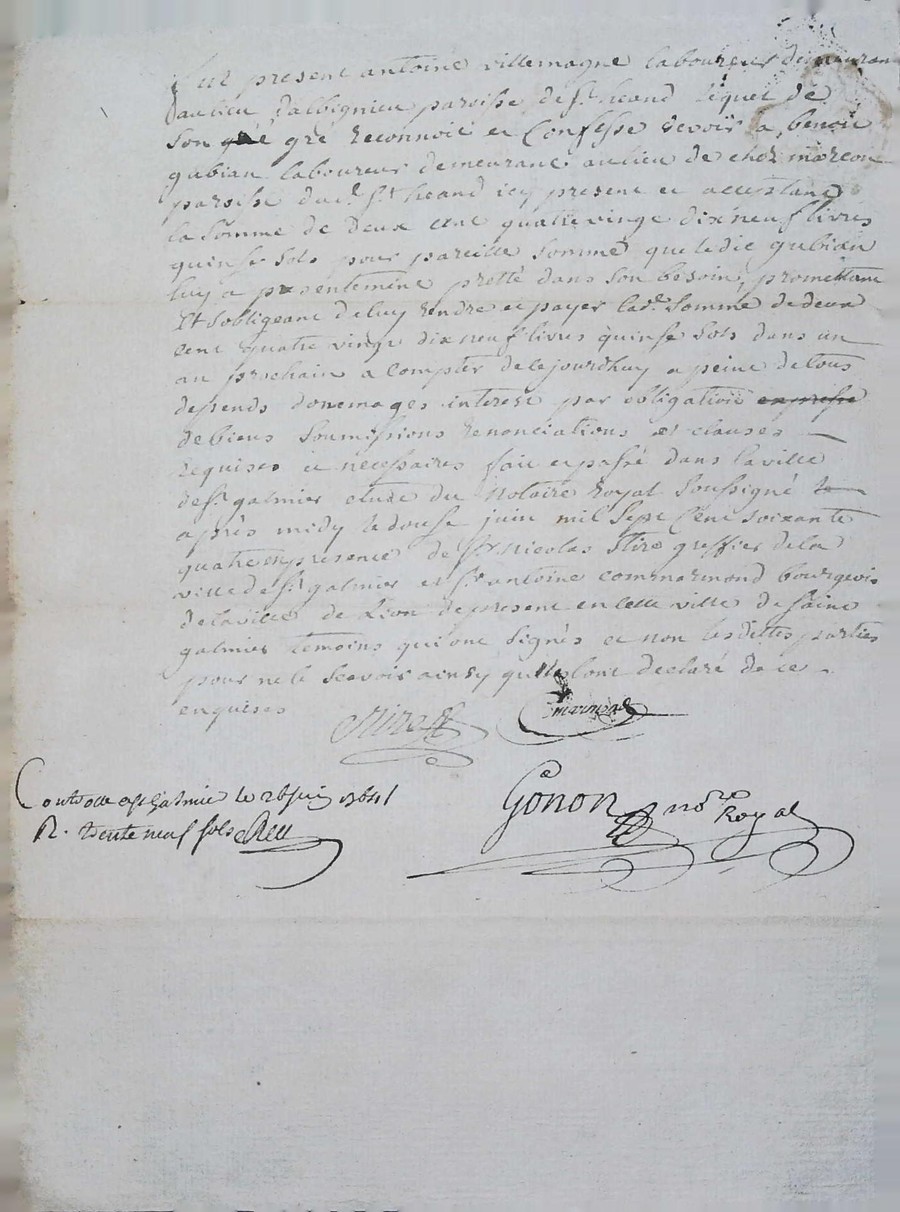 fut present antoine villemagne laboureur demeurant
au lieu dalbignieu paroisse de st heand lequel de
son gré gré reconnoit et Confesse devoir a benoit
gubian laboureur demeurant au lieu de chez marcou
paroisse dud. st heand icy present et acceptant
la somme de deux cent quatre vingt dix neuf livres
quinse sols pour pareille somme que le dit gubian
luy a presentement pretté dans son besoin, promettant
Et sobligeant de luy rendre et payer lad.e somme de deux
cent quatre vingt dix neuf livres quinse sols dans un
an prochain a compter de ce jourdhuy a peine de tous
depends domemages interest par obligation expresse
de biens soumissions renonciations et clauses
requises et necessaires fait et passé dans la ville
de st galmier etude du Notaire Royal soussigné le
après midy le douse juin mil sept Cent soixante
quatre en presence de sr Nicolas Mire greffier de la
ville de st galmier et sr antoine commarmond bourgeois
de la ville de Lion de present en cette ville de saint
galmier temoins qui ont signés et non lesdittes parties
pour ne le scavoir ainsy quils lont declaré de ce
enquises
Mire Commarmond
Controllé a st Galmier le 26 juin 1764
R. trente neuf sols
Gonon nore Royal